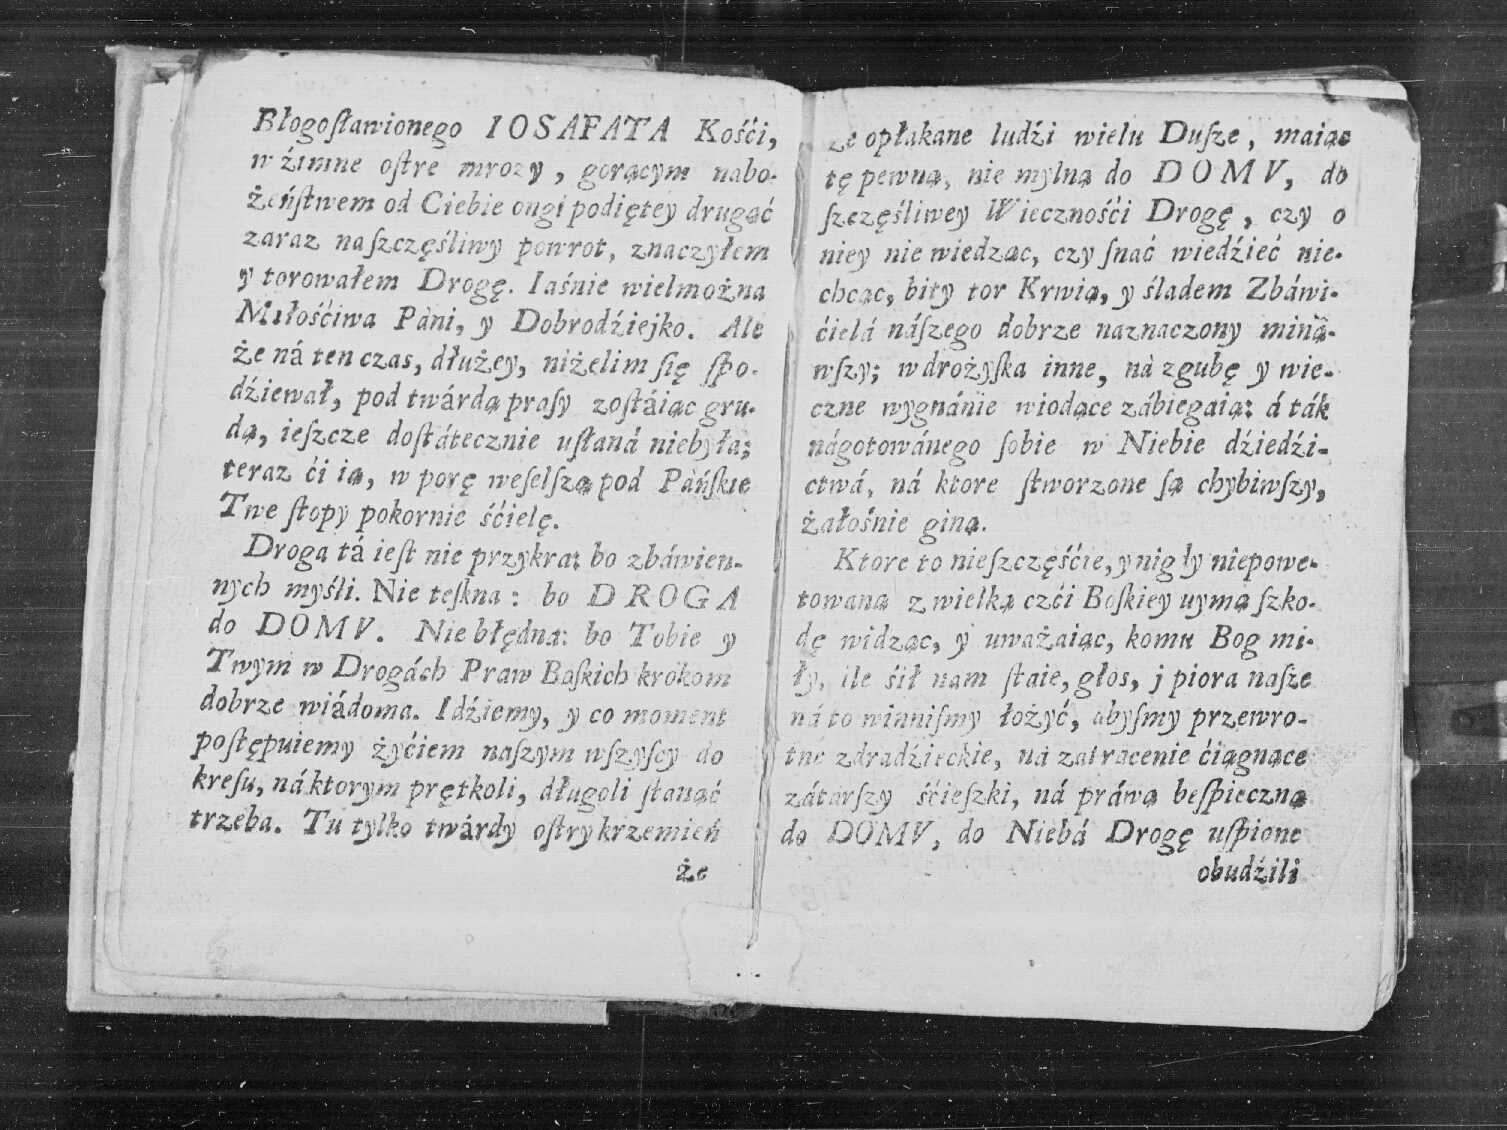 Błogoſławionego IOSAFATA Kośći,
w źimne oſtre mrozy, gorącym nabo-
żeńſtwem od Ciebie ongi podiętey drugąć
zaraz na ſzczęśliwy powrot, znaczyłem
y torowałem Drogę. Iaśnie wielmożna
Miłośćiwa Páni, y Dobrodźiejko. Ale
że ná ten czas, dłużey, niżelim ſię ſpo-
dźiewał, pod twárdą praſy zoſtáiąc gru-
dą, ieſzcze doſtátecznie uſłaná niebyła;
teraz ći ią, w porę weſelſzą pod Páńſkie
Twe ſtopy pokornie śćielę.
Droga tá ieſt nie przykra: bo zbáwien-
nych myśli. Nie teſkna: bo DROGA
do DOMV. Nie błędna: bo Tobie y
Twym w Drogách Praw Boſkich krokom
dobrze wiádoma. Idźiemy, y co moment
poſtępuiemy żyćiem naſzym wſzyſcy do
kreſu, ná ktorym prętkoli, długoli ſtanąć
trzeba. Tu tylko twárdy oſtry krzemień
że
ze opłakane ludźi wielu Duſze, maiąc
tę pewną, nie mylną do DOMV, do
ſzczęśliwey Wiecznośći Drogę, czy o
niey nie wiedząc, czy ſnać wiedźieć nie-
chcąc, bity tor Krwią, y śladem Zbáwi-
ćielá náſzego dobrze naznaczony miną-
wſzy; w drożyſka inne, ná zgubę y wie-
czne wygnánie wiodące zábiegaią: á ták
nágotowánego ſobie w Niebie dźiedźi-
ctwá, ná ktore ſtworzone ſą chybiwſzy,
żałośnie giną.
Ktore to nieſzczęśćie, y nigły niepowe-
towaną z wielką czći Boſkiey uymą ſzko-
dę widząc, y uważaiąc, komu Bog mi-
ły, ile śił nam ſtaie, głos, j piora naſze
ná to winniſmy łożyć, abyſmy przewro-
tne zdradźieckie, ná zatracenie ćiągnące
zátárſzy śćieſzki, ná práwą beſpieczną
do DOMV, do Niebá Drogę uſpione
obudźili